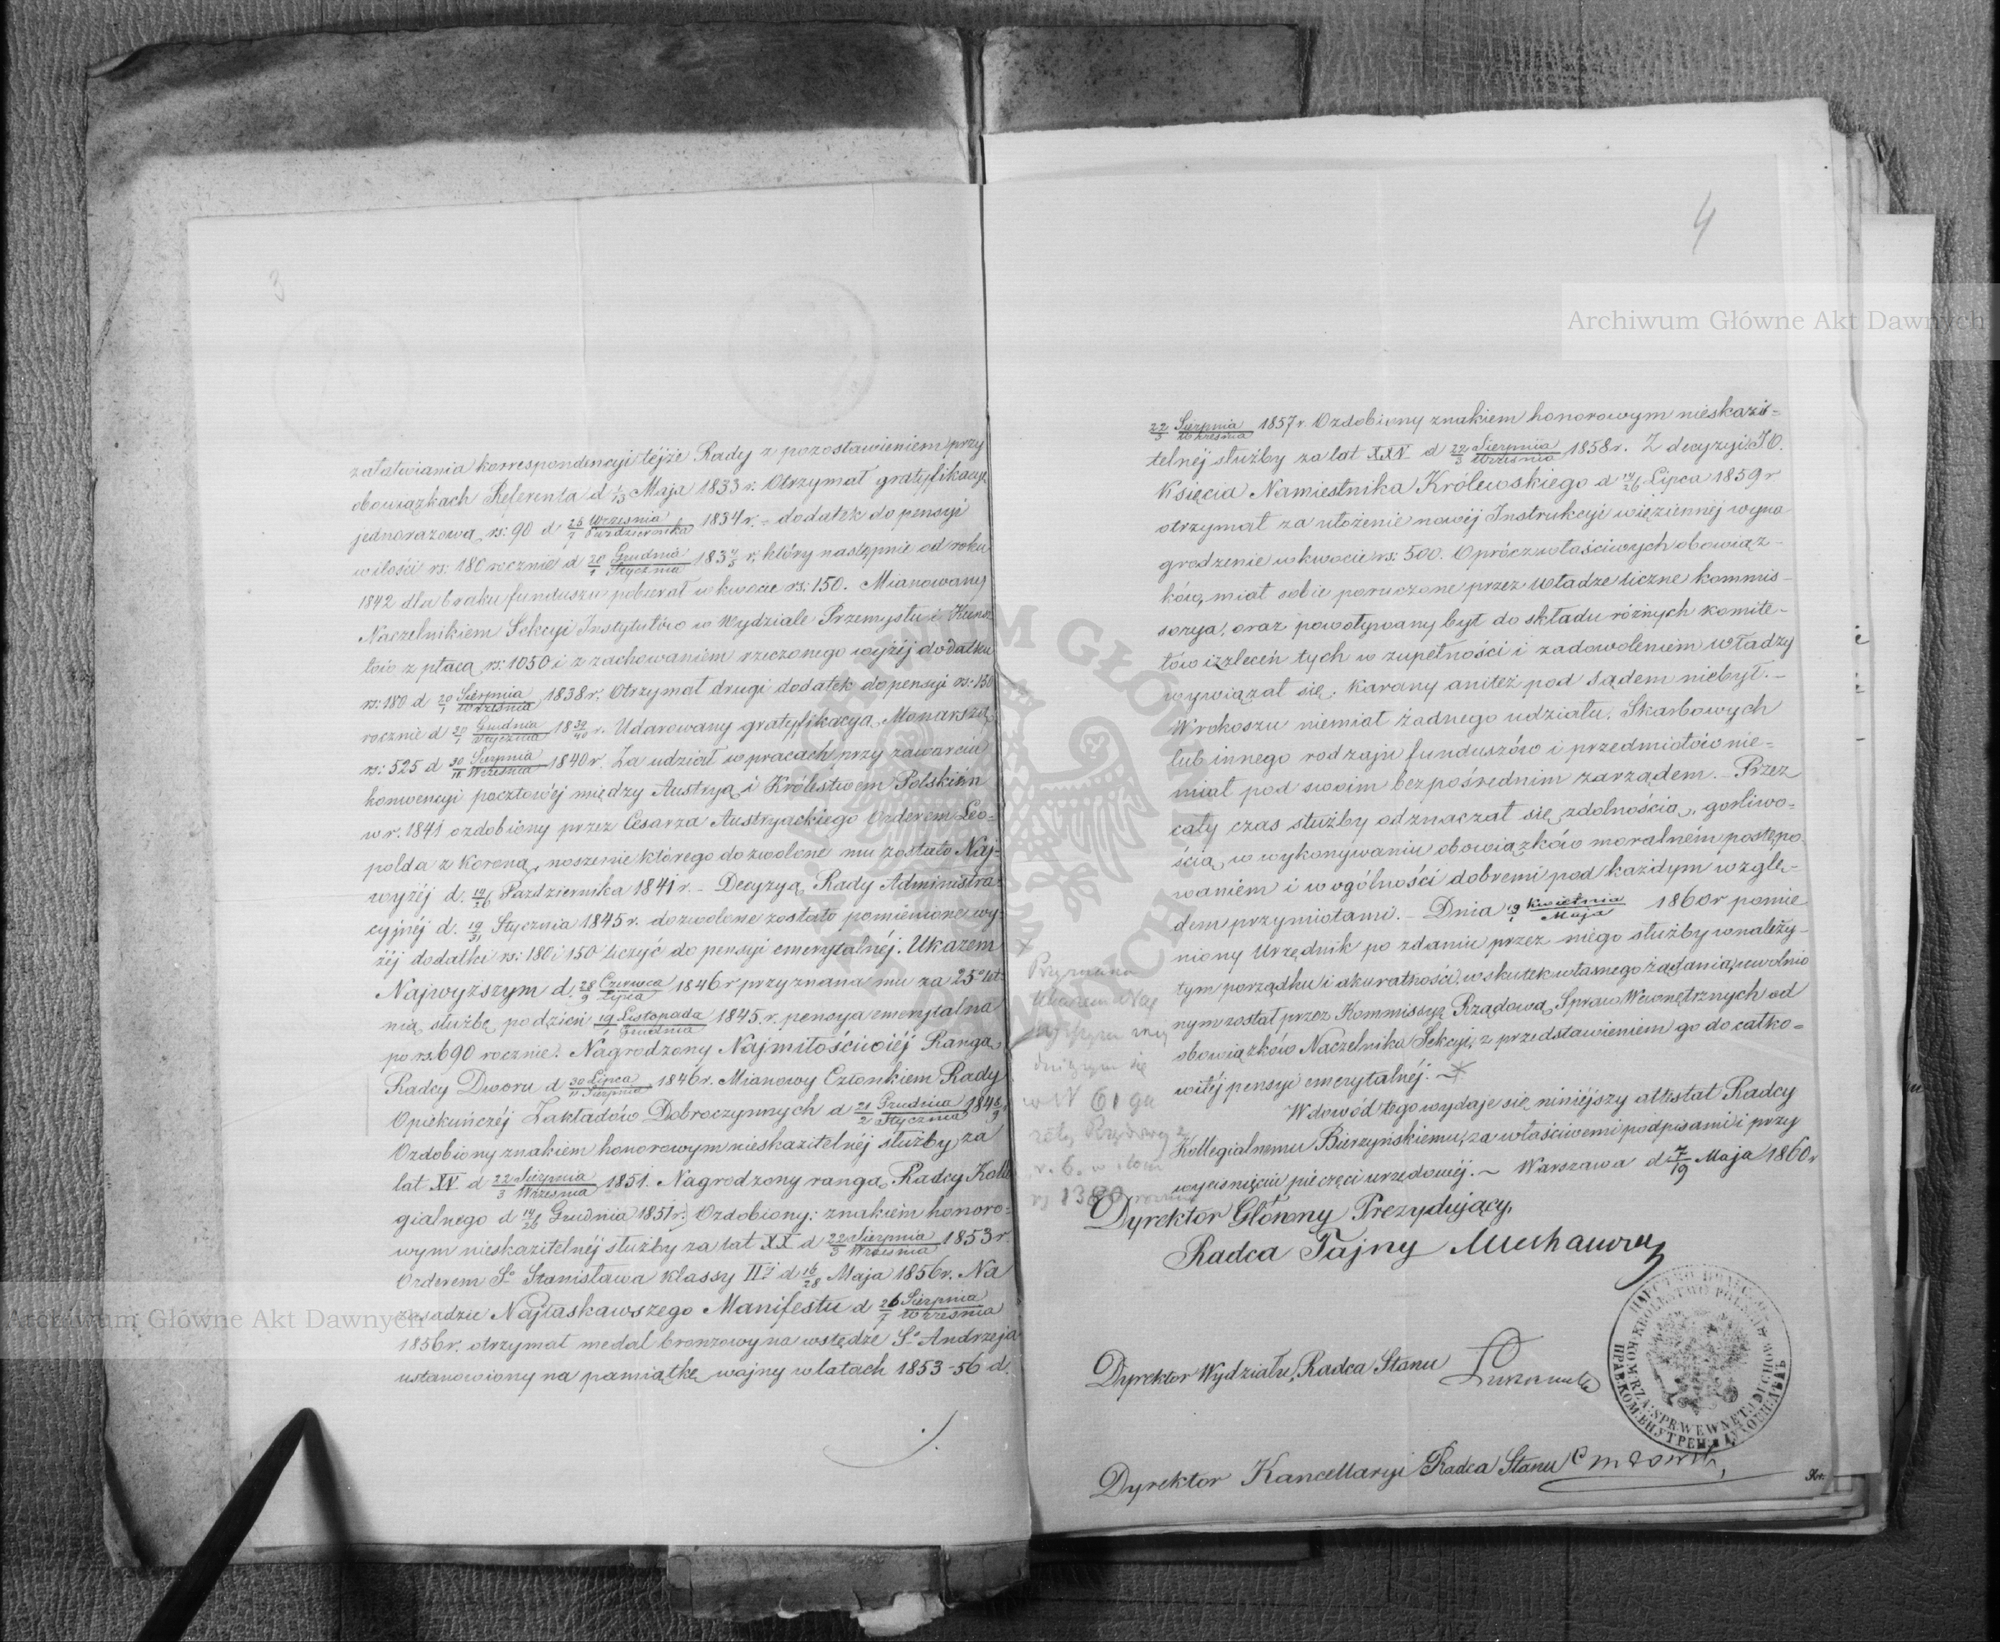 3
załatwiania korrespondencyi tejże Rady z pozostawieniem przy
obowiązkach Referenta d 1/13 Maja 1833 r. Otrzymał gratyfikacyę
jednorazową rs: 90 d 25/7 Września/Października 1834 r. – dodatek do pensyi
w ilości rs: 180 rocznie d 20/1 Grudnia/Stycznia 183 4/5 r, który następnie od roku
1842 dla braku funduszu pobierał w kwocie rs: 150. Mianowany
Naczelnikiem Sekcyi Instytutów w Wydziale Przemysłu i Kun-
tów z płacą rs: 1050 i z zachowaniem rzeczonego wyżéj dodatku
rs: 180 d 20/1 Sierpnia/Września 1838 r. Otrzymał drugi dodatek do pensyi rs: 150
rocznie d 20/1 Grudnia/Stycznia 18 39/40 r. Udarowany gratyfikacyą Monarszą
rs: 525 d 30/11 Sierpnia/Września 1840 r. Za udział w pracach przy zawarciu
konwencyi pocztowéj między Austryą i Królestwem Polskiém
w r. 1841 ozdobiony przez Cesarza Austryackiego Orderem Leo-
polda z Koroną, noszenie którego dozwolone mu zostało Naj-
wyżéj d. 14/26 Października 1841 r. – Decyzyą Rady Administra-
cyjnéj d. 19/31 Stycznia 1845 r. dozwolone zostało pomienione wy-
żéj dodatki rs: 180 i 150 liczyć do pensyi emerytalnéj. Ukazem
Najwyższym d. 28/9 Czerwca/Lipca 1846 r przyznana mu za 25o let-
nią służbę po dzień 19/1 Listopada/Grudnia 1845 r. pensya emerytalna
po rs. 690 rocznie. Nagrodzony Najmiłościwiéj Rangą
Radcy Dworu d 30/11 Lipca/Sierpnia 1846 r. Mianowy Członkiem Rady
Opiekuńczéj Zakładów Dobroczynnych d 21/2 Grudnia/Stycznia 184 8/9
Ozdobiony znakiem honorowym nieskazitelnéj służby za
lat XV d 22/3 Sierpnia/Września 1851. Nagrodzony rangą Radcy Kolle
gialnego d 14/26 Grudnia 1851 r. Ozdobiony: znakiem honoro-
wym nieskazitelnéj służby za lat XX d 22/3 Sierpnia/Września 1853 r.
Orderem So Stanisława klassy IIéj d 16/28 Maja 1856 r. Na
zasadzie Najłaskawszego Manifestu d 26/7 Sierpnia/Września
1856 r. otrzymał medal bronzowy na wstędze So Andrzeja
ustanowiony na pamiątkę wojny w latach 1853-56 d.
4
22/3 Sierpnia/Września 1857 r. Ozdobiony znakiem honorowym nieskazi-
telnéj służby za lat XXV d 22/3 Sierpnia/Września 1858 r. Z decyzyi JO.
Księcia Namiestnika Królewskiego d 14/26 Lipca 1859 r
otrzymał za ułożenie nowéj Instrukcyi więziennéj wyna
grodzenie w kwocie rs: 500. Oprócz właściwych obowiąz-
ków, miał sobie poruczone przez Władze liczne kommis-
sorya, oraz powoływany był do składu różnych komite-
tów i zleceń tych w zupełności i zadowoleniem Władzy
wywiązał się; karany ani też pod sądem niebył. –
W rokoszu niemiał żadnego udziału. Skarbowych
lub innego rodzaju funduszów i przedmiotów nie-
miał pod swoim bezpośrednim zarządem. – Przez
cały czas służby odznaczał się zdolnością, gorliwo-
ścią w wykonywaniu obowiązków moralném postępo
waniem i w ogólności dobremi pod każdym wzglę-
dem przymiotami. – Dnia 19/1 Kwietnia/Maja 1860 r pomie
niony Urzędnik po zdaniu przez niego służby w należy-
tym porządku i akuratności, w skutek własnego żądania, uwolnio
nym został przez Kommissyę Rządową Spraw Wewnętrznych od
obowiązków Naczelnika Sekcyi, z przedstawieniem go do całko-
witéj pensyi emerytalnéj. –
W dowód tego wydaje się niniéjszy attestat Radcy
Kollegialnemu Bierzyńskiemu, za właściwemi podpisami i przy
wyciśnięciu pieczęci urzędowéj. – Warszawa d. 7/19 Maja 1860 r
Przyznana
Ukazem Naj
wyższym
w N 61 ga
zety Rządowéj z
r. b. w ilości
rs 1380 rocznie
Dyrektor Główny Prezydujący,
Radca Tajny Muchanow
Dyrektor Wydziału, Radca Stanu
Dyrektor Kancellaryi Radca Stanu
KOM. RZ. SPR. WEWNĘT. I DUCHOW.
KRÓLESTWO POLSKIE
Archiwum Główne Akt Dawnych
Archiwum Główne Akt Dawnych